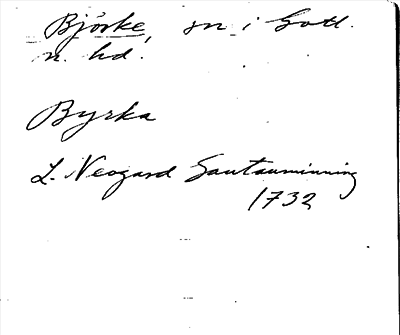 Björke, sn i Gotl.
n. hd.
Byrka
L. Neogard Gautauminning
1732